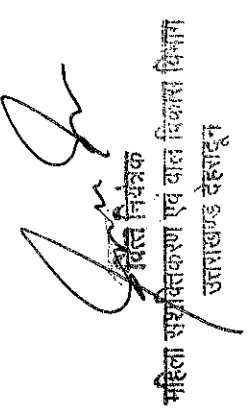 वित्त नियंत्रक
महिला सशक्तिकरण एवं बाल विकास विभाग
उत्तराखण्ड देहरादून